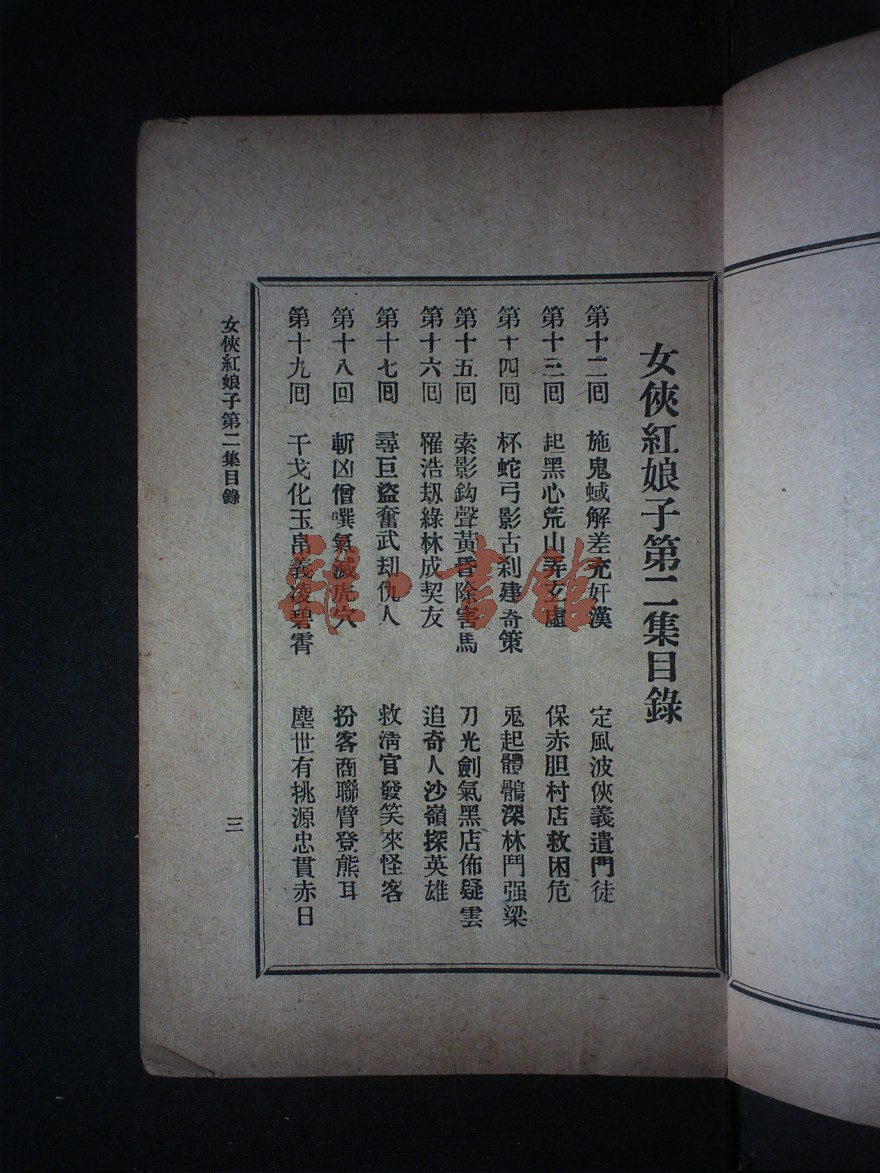 女俠紅娘子第二集目錄
第十二囘 施鬼蜮解差充奸漢 定風波俠義遣門徒
第十三囘 起黑心荒山弄玄虛 保赤胆村店救困危
第十四囘 杯蛇弓影古刹建奇策 兎起體鶻深林鬥强梁
第十五囘 索影鈎聲黃昏除害馬 刀光劍氣黑店佈疑雲
第十六囘 羅浩刼綠林成契友 追奇人沙嶺探英雄
第十七囘 尋巨盜奮武刼仇人 救淸官發笑來怪客
第十八回 斬凶僧噀氣滅虎穴 扮客商聯臂登熊耳
第十九囘 干戈化玉帛義凌碧霄 塵世有挑源忠貫赤日
女俠紅娘子第二集目錄
三
雅·書館